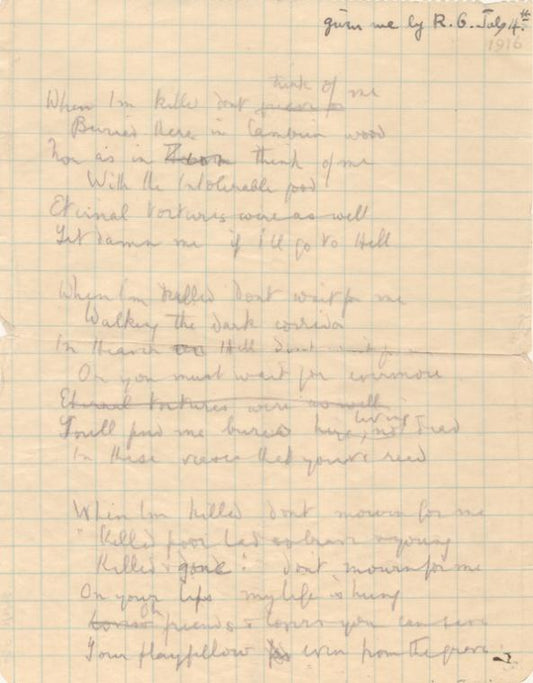 given me by R. G. July 4th
1916
think of me
When I'm killed dont
Buried there in Cambrin wood
Nor as in Zion think of me
With the Intolerable good
Eternal tortures were as well
Let damn me if I'll go to Hell
When I'm killed dont wait for me
Walking the dark corridor
In Heaven or Hell dont wait for me
Or you must wait for evermore
Eternal tortures were as well
living
Youll find me buried here, not dead
In these verses that you've read
When I'm killed dont mourn for me
"Killed poor lad so brave & young
Killed & gone": dont mourn for me
On your lips my life is hung
Oh
friends & lovers you can save
Your playfellow even from the grave.